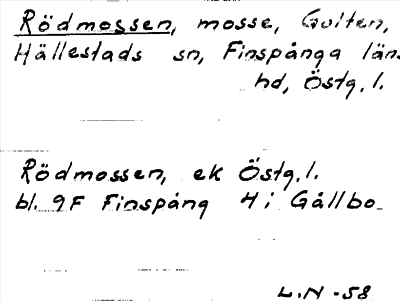 Rödmossen, mosse, Gulten,
Hällestads sn, Finspånga läns
hd, Östg. l.
Rödmossen, ek Östg. l.
bl. 9F Finspång 4i Gållbo
L.N -58